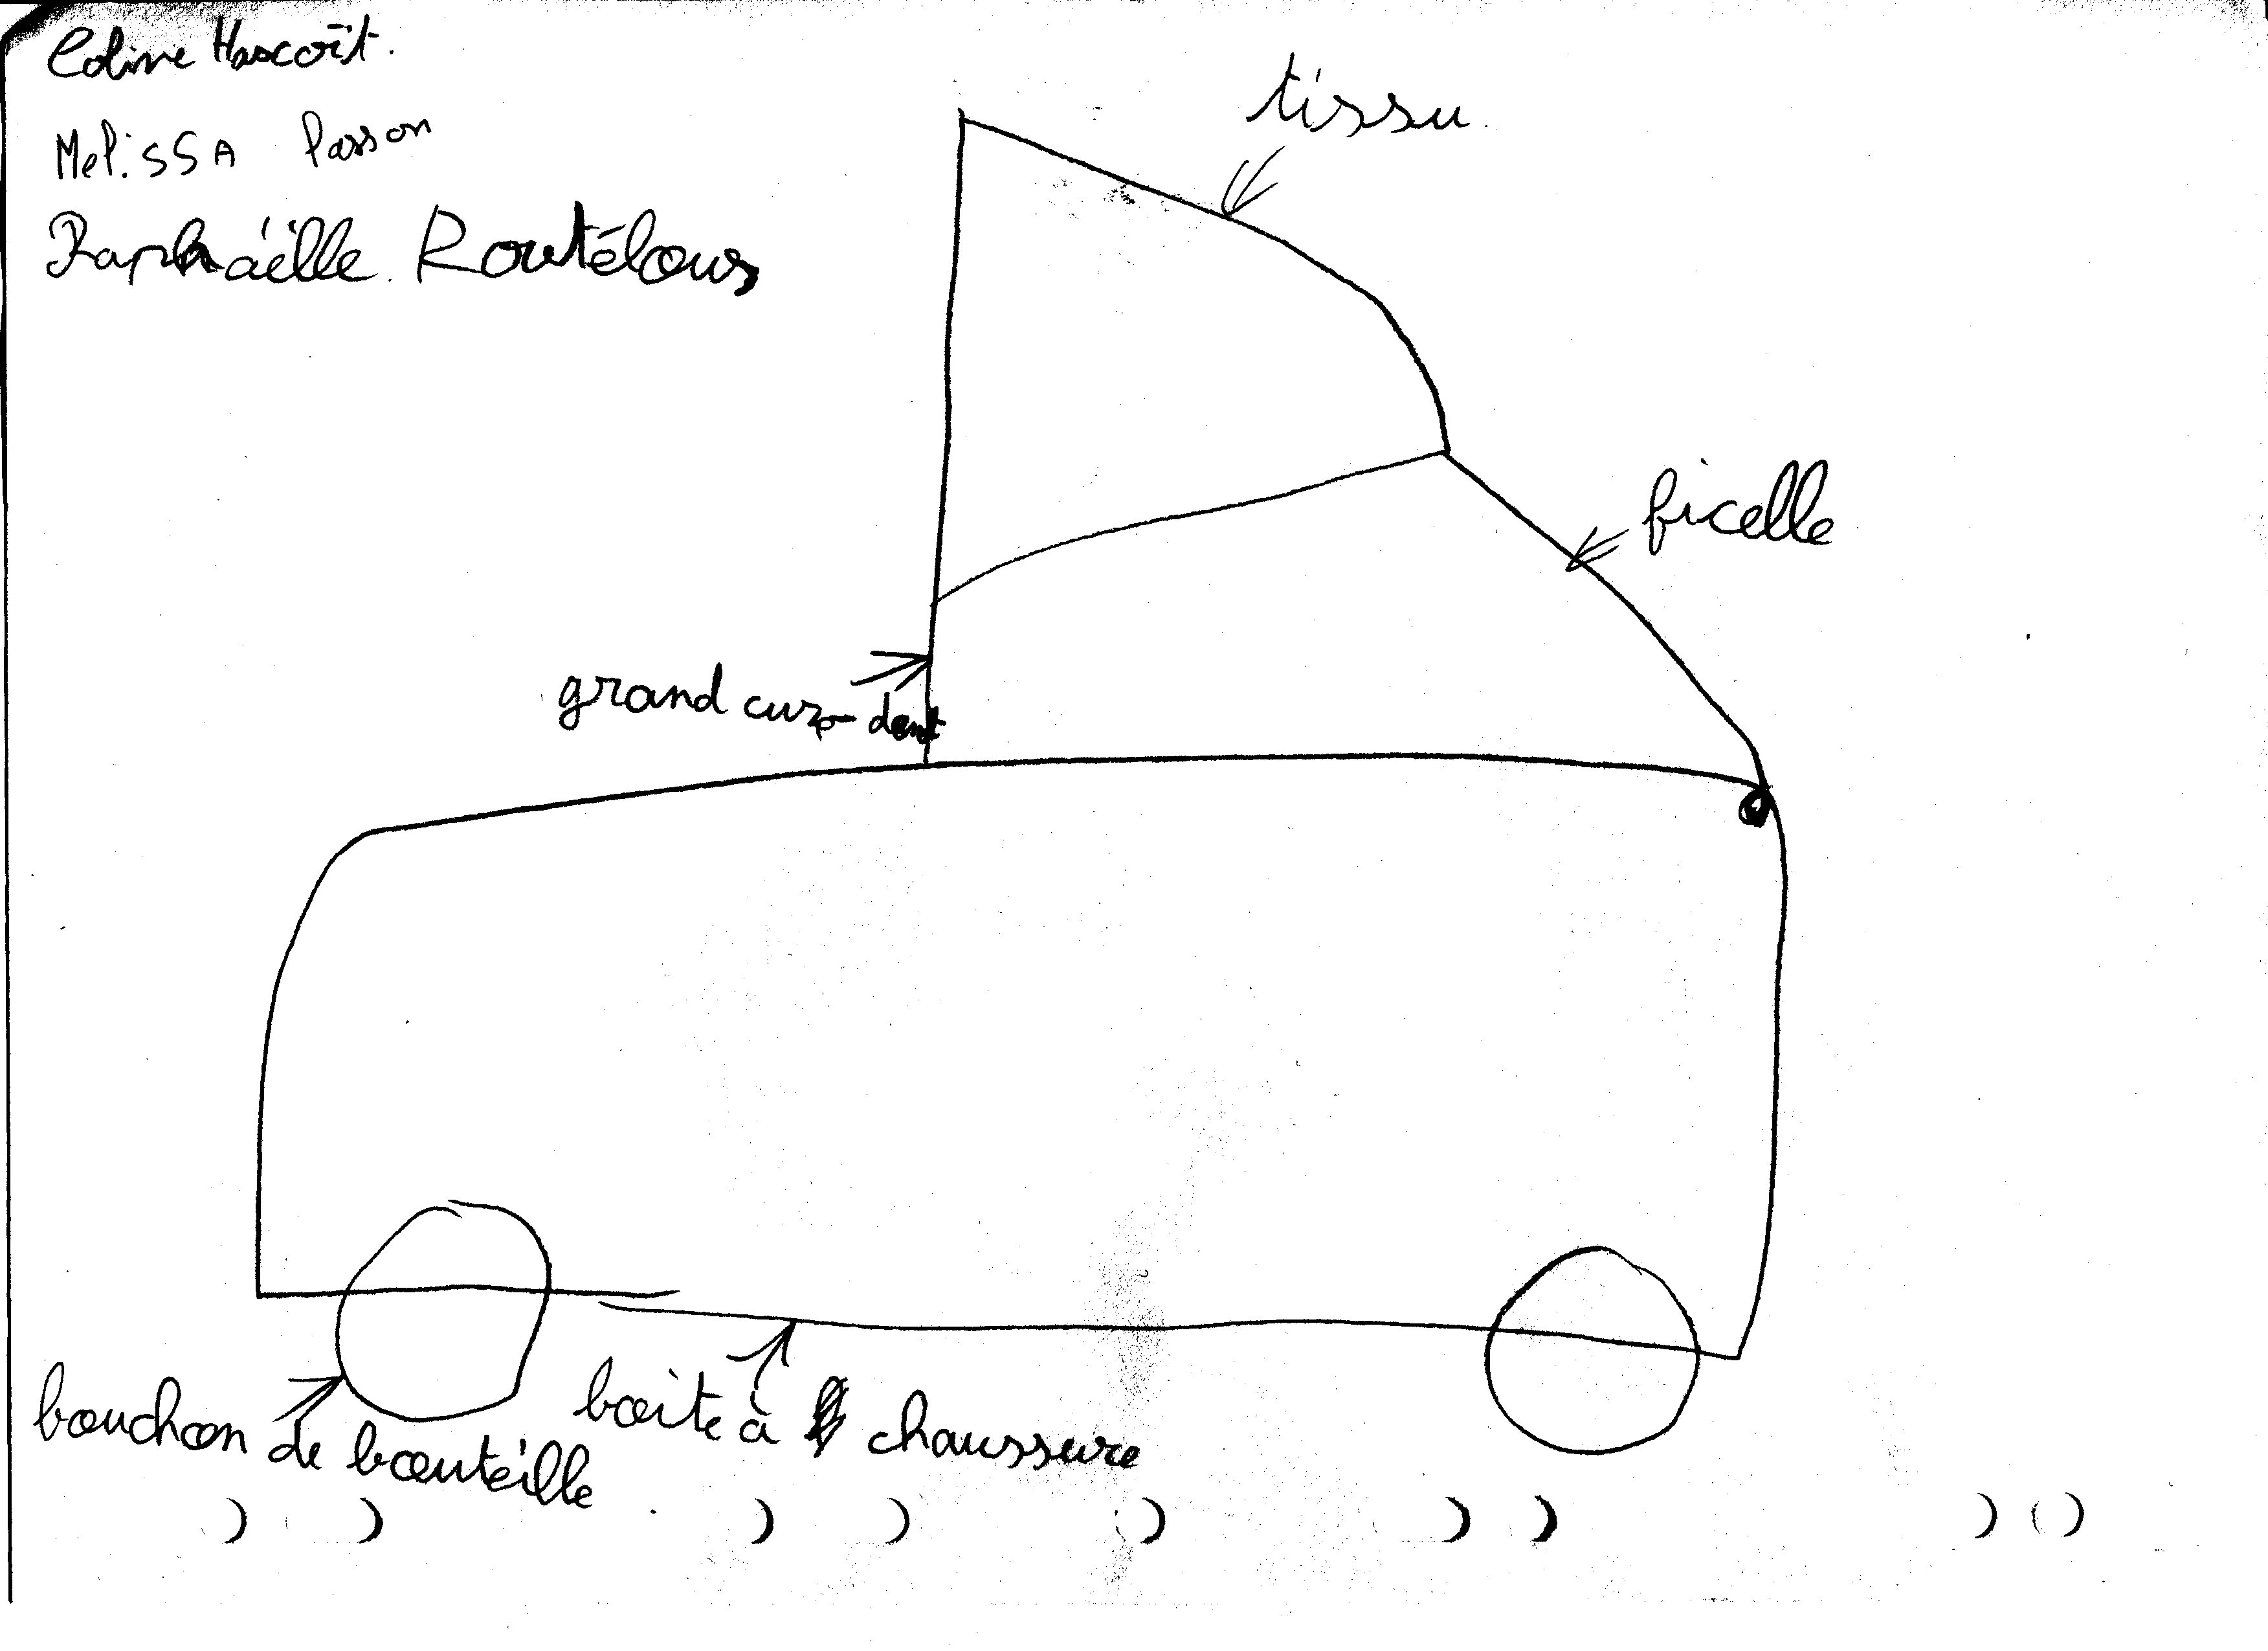 Coline Hascoït.
MeliSSA Passon
Raphaëlle Routélous
tissu
ficelle
grand cure-dent
boite à chaussure
bouchon de bouteille